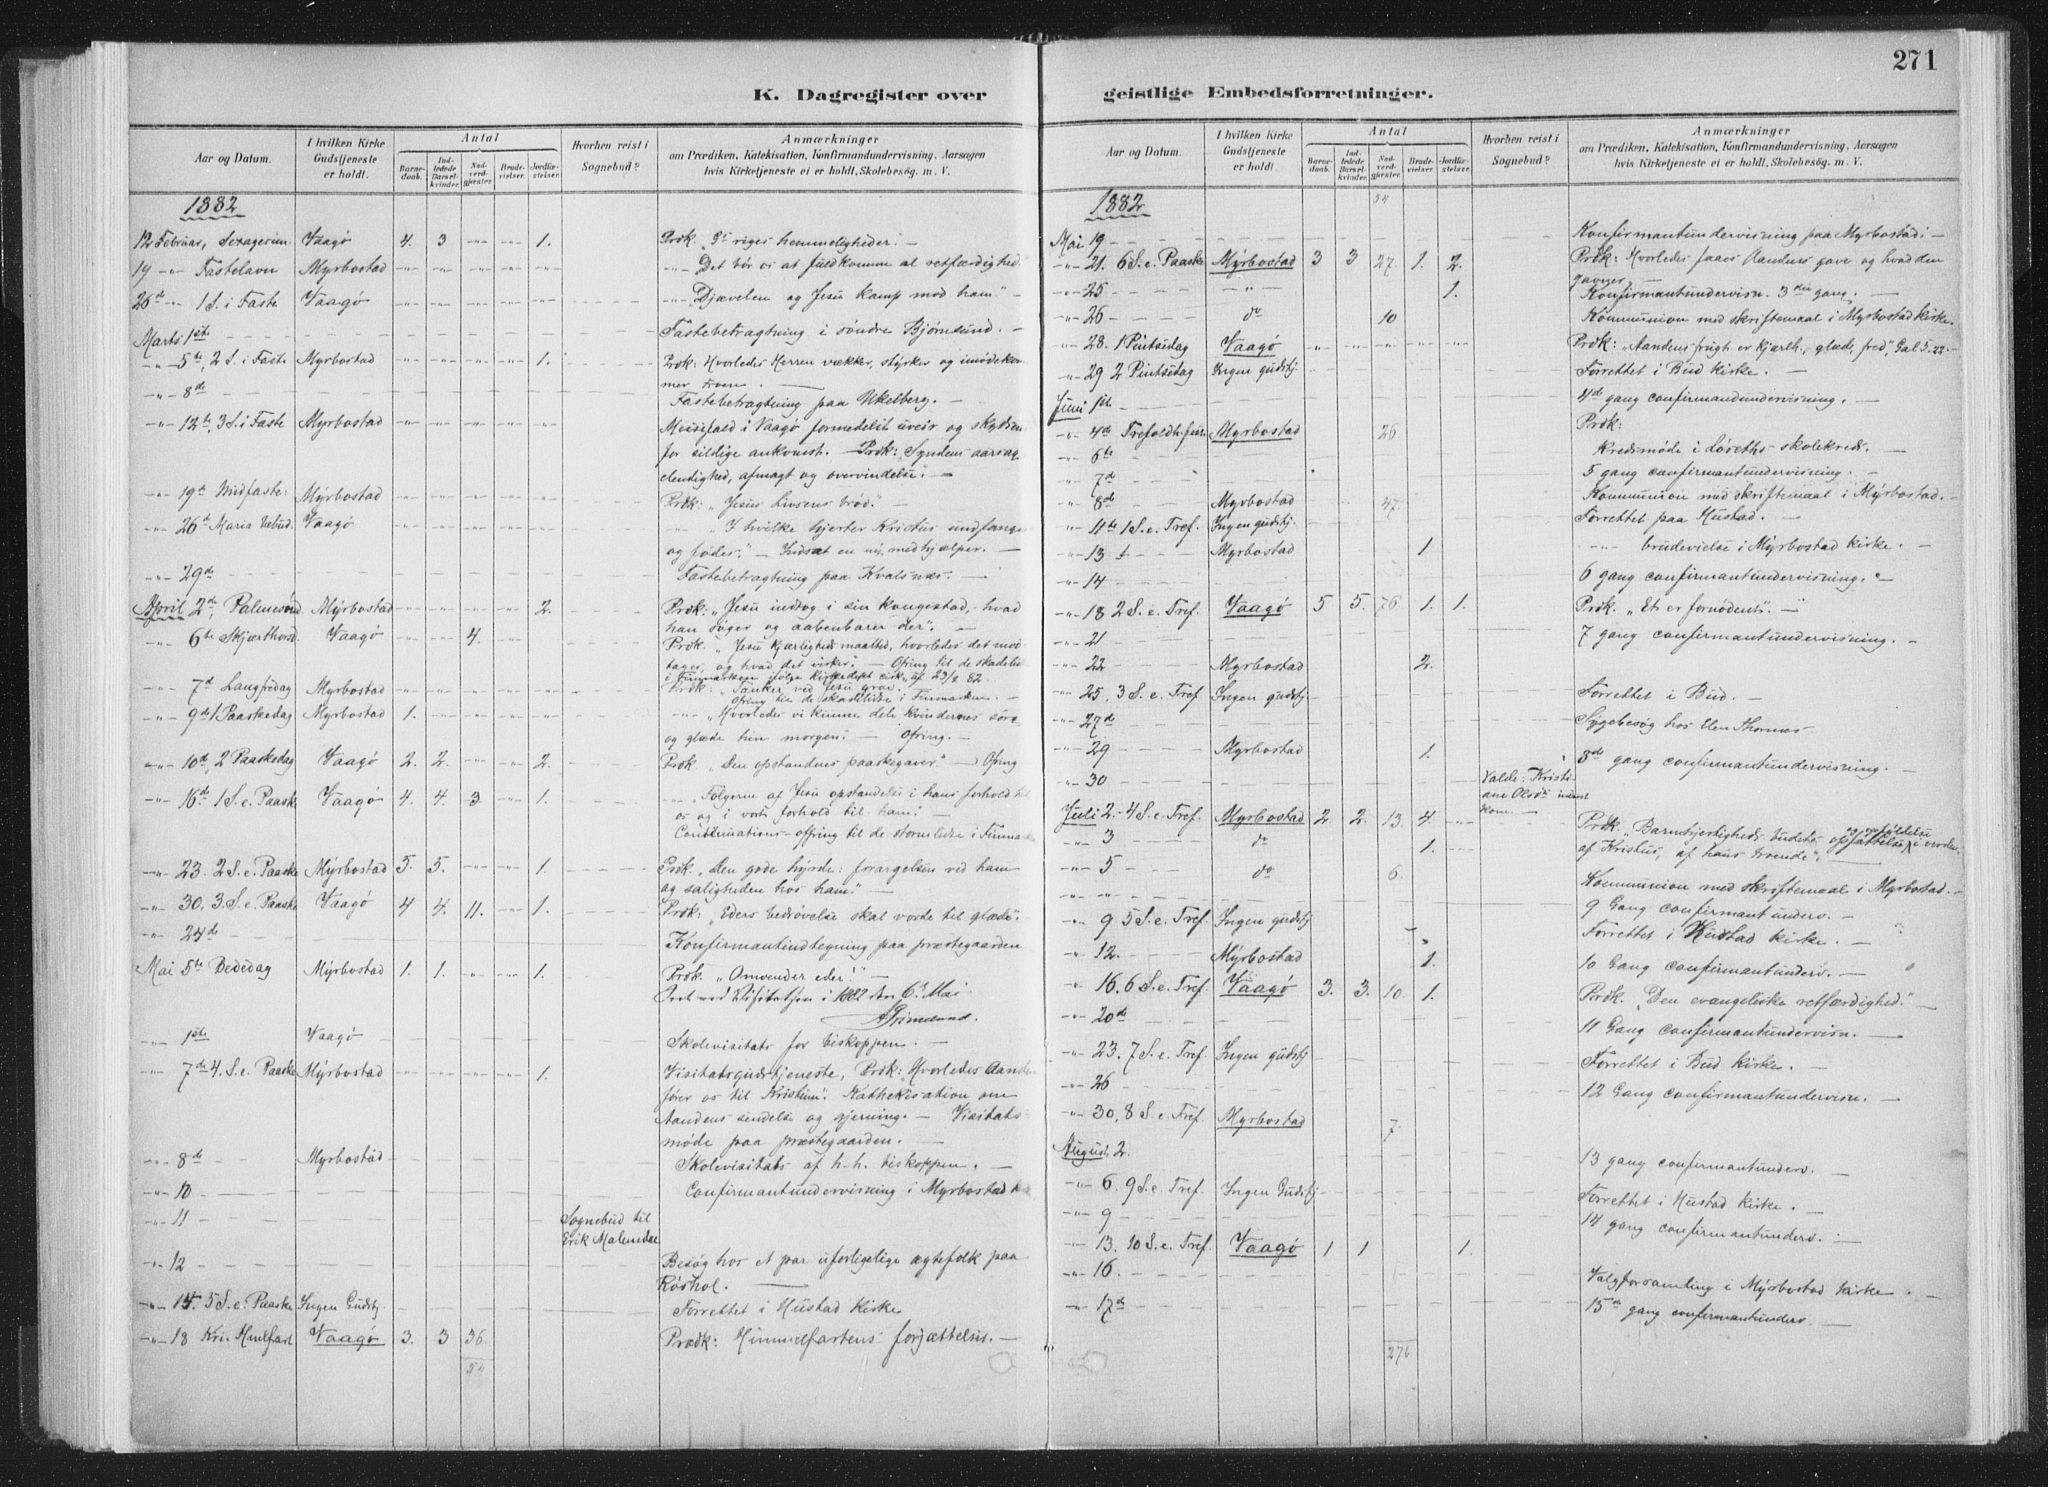 271
K. Dagregister over
Aar og Datum.
I hvilken Kirke Gudstjeneste er holdt.
Antal
Barnedaab.
Indledede Barselkvinder.
Nadverdgjester.
Brudevielser.
Jordfæstelser.
Hvorhen reist i Sognebud?
Anmærkninger
om Prædiken, Katekisation, Konfirmandundervisning, Aarsagen
hvis Kirketjeneste ei er holdt, Skolebesøg. m. V.
1882
12 Februar, Sexagesim. Vaagø 4. 3 -"- -"- 1. Prdk. "Gs riges hemmeligheder. -
19 -"- Fastelavn Myrbostad -"- "Det bør os at fuldkomme al retfærdighed."
26de -"- 1 S. i Faste Vaagø -"- "Djævelen og Jesu kamp mod ham" -
Marts 1ste Fastebetragtning i søndre Bjørnsund. -
-"- 5te, 2 S. i Faste Myrbostad 1. Prdk: Hvorledes Herren vækker, styrker og imødekom
mer troen. -
-"- 8de Fastebetragtning paa Ukelberg. -
-"- 12te, 3 S. i Faste Myrbostad Messefald i Vaagø formedelst uveir og skydsen
for sildige ankomst. - Prdk: "Syndens aarsag,
elendighed, afmagt og overvindelse". -
-"- 19de Midfaste: Myrbostad Prdk: "Jesus Livsens brød."
-"- 26de Maria bebud. Vaagø -"- I hvilke hjerter Kristus undfanges
og fødes". - Indsat en ny medhjælper. -
-"- 29de Fastebetragtning paa Kvalsnæs. -
April 2de, Palmesønd. Myrbostad 2. Prdk: "Jesu indtog i sin kongestad, - hvad
han søger og aabenbarer der". -
-"- 6te Skjærthorsd. Vaagø 4. Prdk. "Jesu kjærligheds maaltid, hvorledes det mod
tages, og hvad det virker". - Ofring til de skadelidte
i Finmarken ifølge kirkedept. cirk. af 23/2 82.
-"- 7de Langfredag Myrbostad Prdk: "Tanker ved Jesu grav".
Ofring til de skadelidte i Finmarken. -
-"- 9de 1 Paaskedag Myrbostad 1. -"- "Hvorledes vi kunne dele kvindernes sorg
og glæde hin morgen". - Ofring. -
-"- 10de, 2 Paaskedag Vaagø 2. 2. 2. Prdk. "Den opstandnes paaskegaver." - Ofring
-"- 16de 1 S. e. Paaske Vaagø 4. 4. 3 1. -"- "Følgerne af Jesu opstandelse i hans forhold til
os og i vort forhold til ham."
Continuations-offring til de stormlidte i Finmarken
-"- 23. 2 S. e. Paaske Myrbostad 5. 5. 1. Prdk. "Den gode hyrde: forargelsen ved ham
og saligheden hos ham." -
-"- 30. 3. S. e. Paaske Vaagø 4 4. 11. 1. Prdk: "Eders bedrøvelse skal vorde til glæde".
-"- 24de Konfirmantindtegning paa præstegaarden
Mai 5te Bededag Myrbostad 1. 1. 1. Prdk. "Omvender eder!" -
Seet ved Visitatsen i 1882 den 6te Mai
A Grimelund.
-"- 1ste Vaagø Skolevisitats for biskoppen. -
-"- 7de 4. S. e. Paaske Myrbostad 1. Visitatsgudstjeneste, Prdk: "Hvorledes Aanden
fører os til Kristum". Kathekisation om
Aandens sendelse og gjerning. - Visitats
møde paa præstegaarden. -
-"- 8de Myrbostad Skolevisitats af h. h. biskoppen. -
-"- 10 Confirmantundervisning i Myrbostad k
-"- 11 Sognebud til
Erik Malmedal
-"- 12 Besøg hos et par uforligelige ægtefolk paa
Røshol. -
-"- 14. 5 S. e. Paaske Ingen Gudstj. Forrettet i Hustad Kirke
-"- 18 Kri. Himlfart Vaagø 3. 3 36. Prædk: Himmelfartens forjættelse. -
54
geistlige Embedsforretninger.
Aar og Datum.
I hvilken Kirke Gudstjeneste er holdt.
Antal
Barnedaab.
Indledede Barselkvinder.
Nadverdgjester.
Brudevielser.
Jordfæstelser.
Hvorhen reist i Sognebud?
Anmærkninger
om Prædiken, Katekisation, Konfirmandundervisning, Aarsagen
hvis Kirketjeneste ei er holdt, Skolebesøg. m. V.
1882 54
Mai 19 Konfirmantundervisning paa Myrbostad: -
-"- 21. 6 S. e. Paaske Myrbostad 3 3 27. 1. 2. Prdk: Hvorledes faaes Aandens gave og hvad den
gavner. -
-"- 25 -"- 1. Konfirmantundervisn. 3die gang. -
-"- 26 do 10 Kommunion med skriftemaal i Myrbostad kirke. -
-"- 28. 1 Pintsedag Vaagø Prdk: "Aandens frugt er kjærlh., glæde, fred", Gal 5. 22. -
-"- 29 2 Pintsedag Ingen gudstj. Forrettet i Bud kirke. -
Juni 1ste 4de gang confirmandundervisning. -
-"- 4de Trefoldh. Myrbostad 26. Prdk:
-"- 6te Kredsmøde i Løseths skolekreds. -
-"- 7de 5 gang confirmantundervisning. -
-"- 8de Myrbostad 47. Kommunion med skriftemaal i Myrbostad. -
-"- 11te 1 S. e. Tref. Ingen gudstj. Forrettet paa Hustad. -
-"- 13 Myrbostad 1 -"- brudevielse i Myrbostad kirke. -
-"- 14 6 gang confirmantundervisning. -
-"- 18 2 S. e. Tref. Vaagø 5 5. 76. 1. 1. Prdk. "Et er fornødent". -
-"- 21 7 gang confirmantundervisning. -
-"- 22 Myrbostad 2.
-"- 25. 3 S. e. Tref. Ingen gudstj. Forrettet i Bud. -
-"- 27de Sygebesøg hos Elen Thomas.
-"- 29 Myrbostad 1. 8de gang confirmantundervisning. -
-"- 30 Valde: Kristi
ane Olsdr
kom. -
Juli 2. - 4 S. e. Tref. Myrbostad 2. 2. 13. 4. Prdk. "Barmhjertigheds budets opfattelse og opfyldelse i verden,
af Kristus, af hans troende". -
-"- 3 do 1.
-"- 5 do 6. Kommunion med skriftemaal i Myrbostad. -
-"- -"- 9 Gang confirmantunderv. -
-"- 9 5 S. e. Tref. Ingen gudstj Forrettet i Hustad kirke. -
-"- 12. Myrbostad 1. 10 Gang confirmantunderv. -
-"- 16. 6 S. e. Tref. Vaagø 3. 3. 10. 1. Prdk. "Den evangeliske retfærdighed." -
-"- 20de 11 Gang confirmantundervisn. -
-"- 23. 7 S. e. Tref. Ingen gudstj Forrettet i Bud kirke. -
-"- 26 12 Gang confirmantundervisn. -
-"- 30, 8 S. e. Tref. Myrbostad 7.
August 2. 13 gang confirmantunderv. -
-"- 6. 9 S. e. Tref. Ingen Gudstj Forrettet i Hustad kirke. -
-"- 9 14 gang confirmantunderv. -
-"- 13. 10 S. e. Tref. Vaagø 1 1 1.
-"- 16. Valgforsamling i Myrbostad kirke. -
-"- 17de 15de gang confirmantunderv. -
276